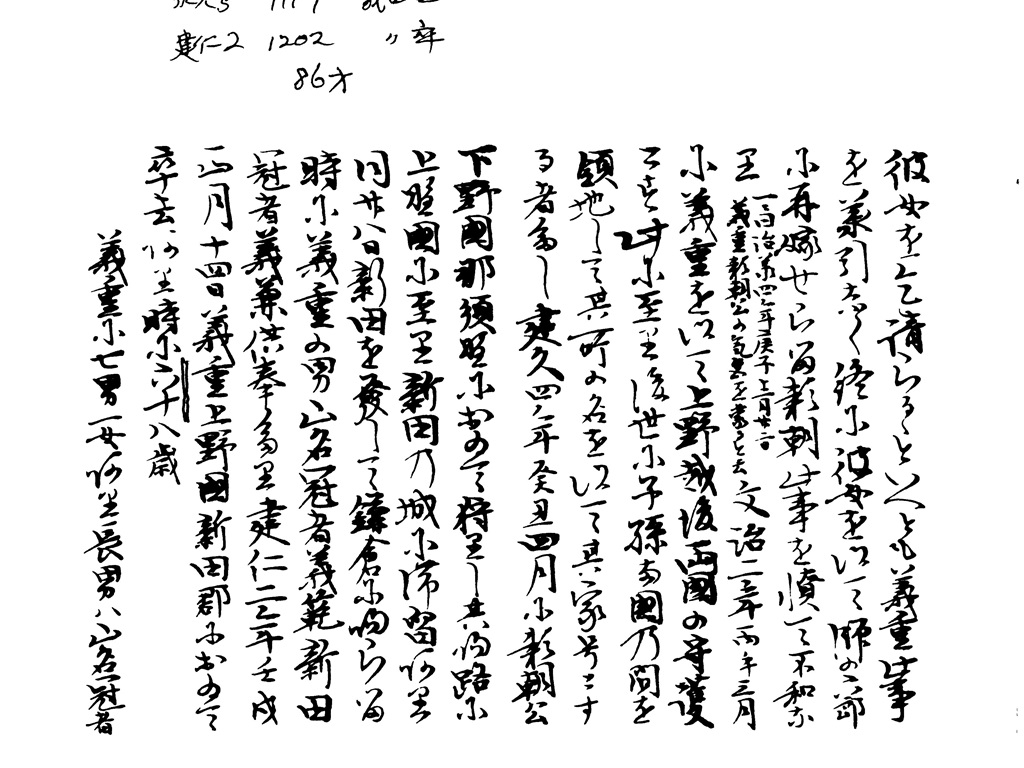 建仁2 1202 〃卒
86才
彼女を乞請らるゝといへとも義重此事
を兼引なく終に彼女を以て師の六郎
に再嫁せらる頼朝此事を憤て不和な
里 一ニ曰治承四年庚子十二月廿二日 義重頼朝公の気色を蒙ると云 文治二年丙午三月
に義重を以て上野越後両国の守護
とす此に至里後世に子孫両国乃間を
領地して其所の名を以て其家号とす
る者多し 建久四年癸丑四月に頼朝公
下野国那須野におゐて狩里し其帰路に
上野国に至里新田乃城に滞留阿里
同廿八日新田を発して鎌倉に帰らる
時に義重の男山名冠者義範新田
冠者義兼供奉多里建仁二年壬戌
正月十四日義重上野国新田郡におゐて
卒去阿里時に六十八歳
義重に七男一女阿里長男ハ山名冠者